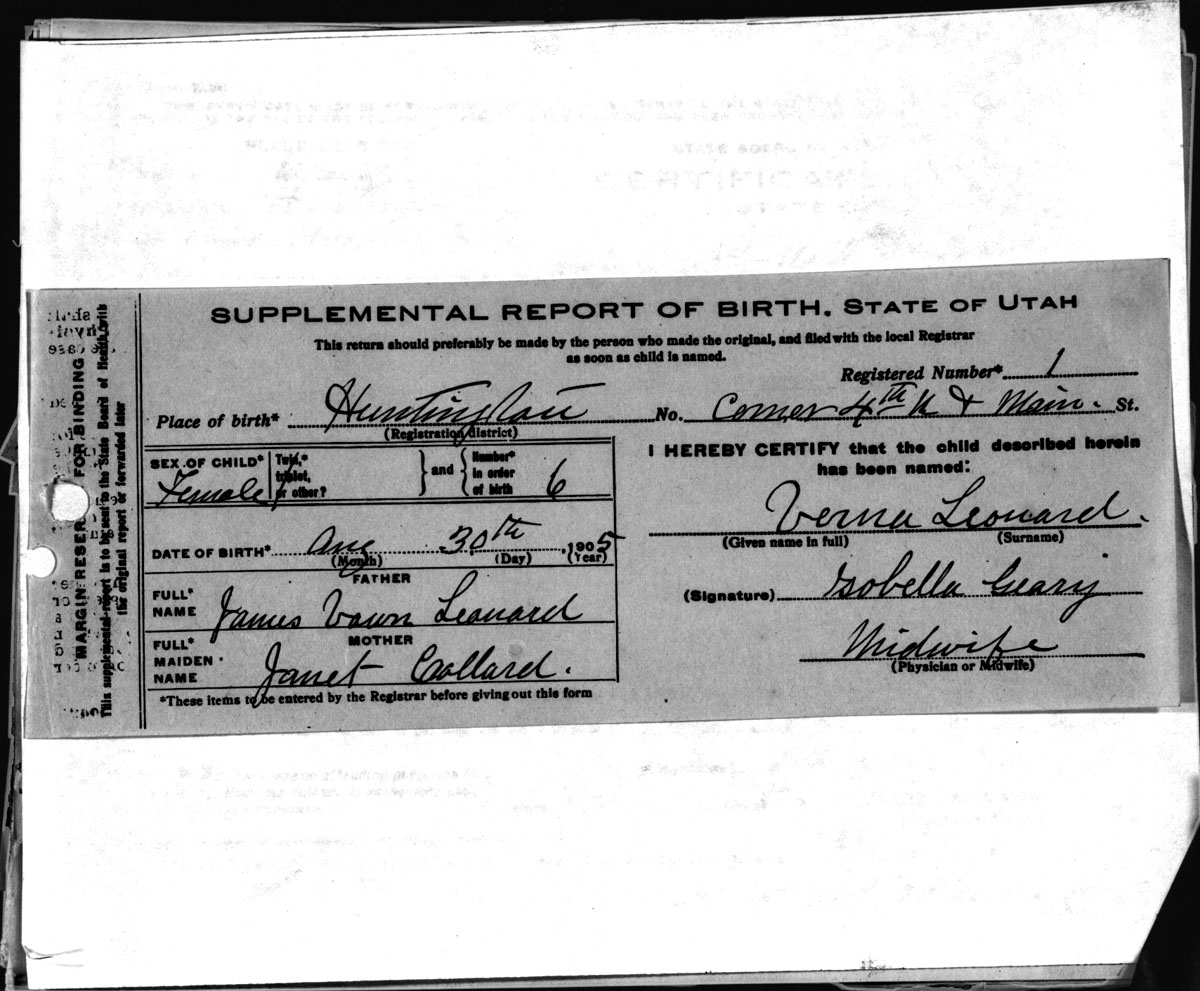 SUPPLEMENTAL REPORT OF BIRTH. STATE OF UTAH
This return should preferably be made by the person who made the original, and filed with the local Registrar
as soon as child is named.
Registered Number* 1
Place of birth* Huntington No. Corner 4th & Main. St.
(Registration district)
SEX OF CHILD* Female
Twin,* triplet, or other?
and
Number* in order of birth 6
DATE OF BIRTH* Aug 30th, 1905
(Month) (Day) (Year)
FATHER
FULL* NAME James Vawn Leonard
MOTHER
FULL* MAIDEN NAME Janet Collard.
*These items to be entered by the Registrar before giving out this form
I HEREBY CERTIFY that the child described herein
has been named:
Verna Leonard.
(Given name in full) (Surname)
(Signature) Isobella Geary
Midwife
(Physician or Midwife)
MARGIN RESERVED FOR BINDING
This supplemental report is to be sent to the State Board of Health with
the original report or forwarded later